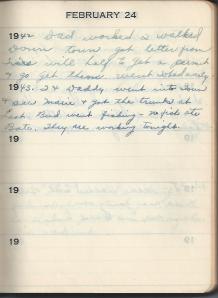 FEBRUARY 24
1942 Dad worked & walked
down town got letter from
will half to get a permit
& go get them went
1943. I & Daddy went into town
& saw Marie & got the trunks at
last. Bud went fishing - no fish ate
Bato. They are working tonight.
19
19
19